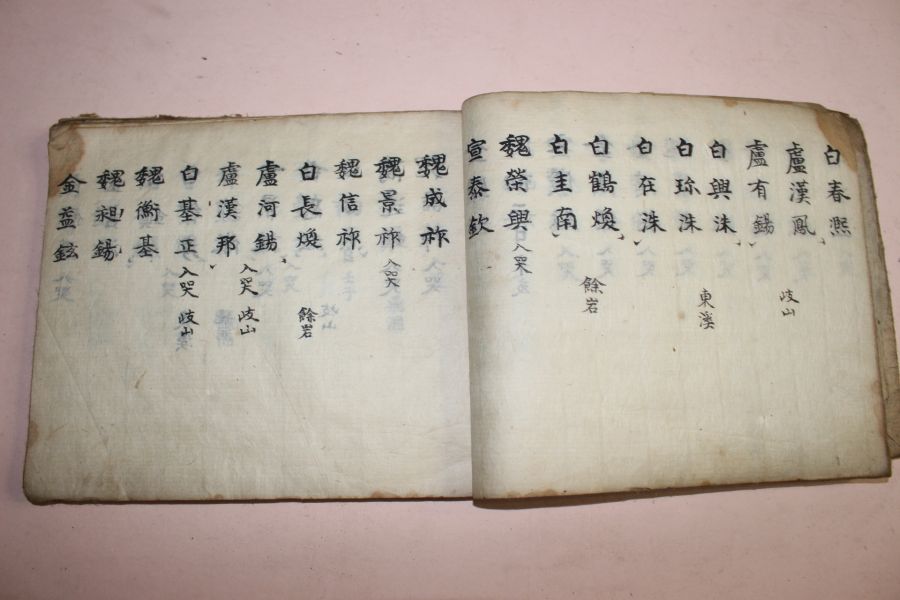 白春熙
盧漢鳳 岐山
盧有錫
白興洙
白珎洙 東溪
白在洙
白鶴煥 餘岩
白圭南
魏榮興 入哭
宣泰欽
魏成祚
魏景祚 入哭
魏信祚
白長煥 餘岩
盧河錫
盧漢邦 入哭 岐山
白基正 入哭 岐山
魏衡基
魏昶錫
金益鉉